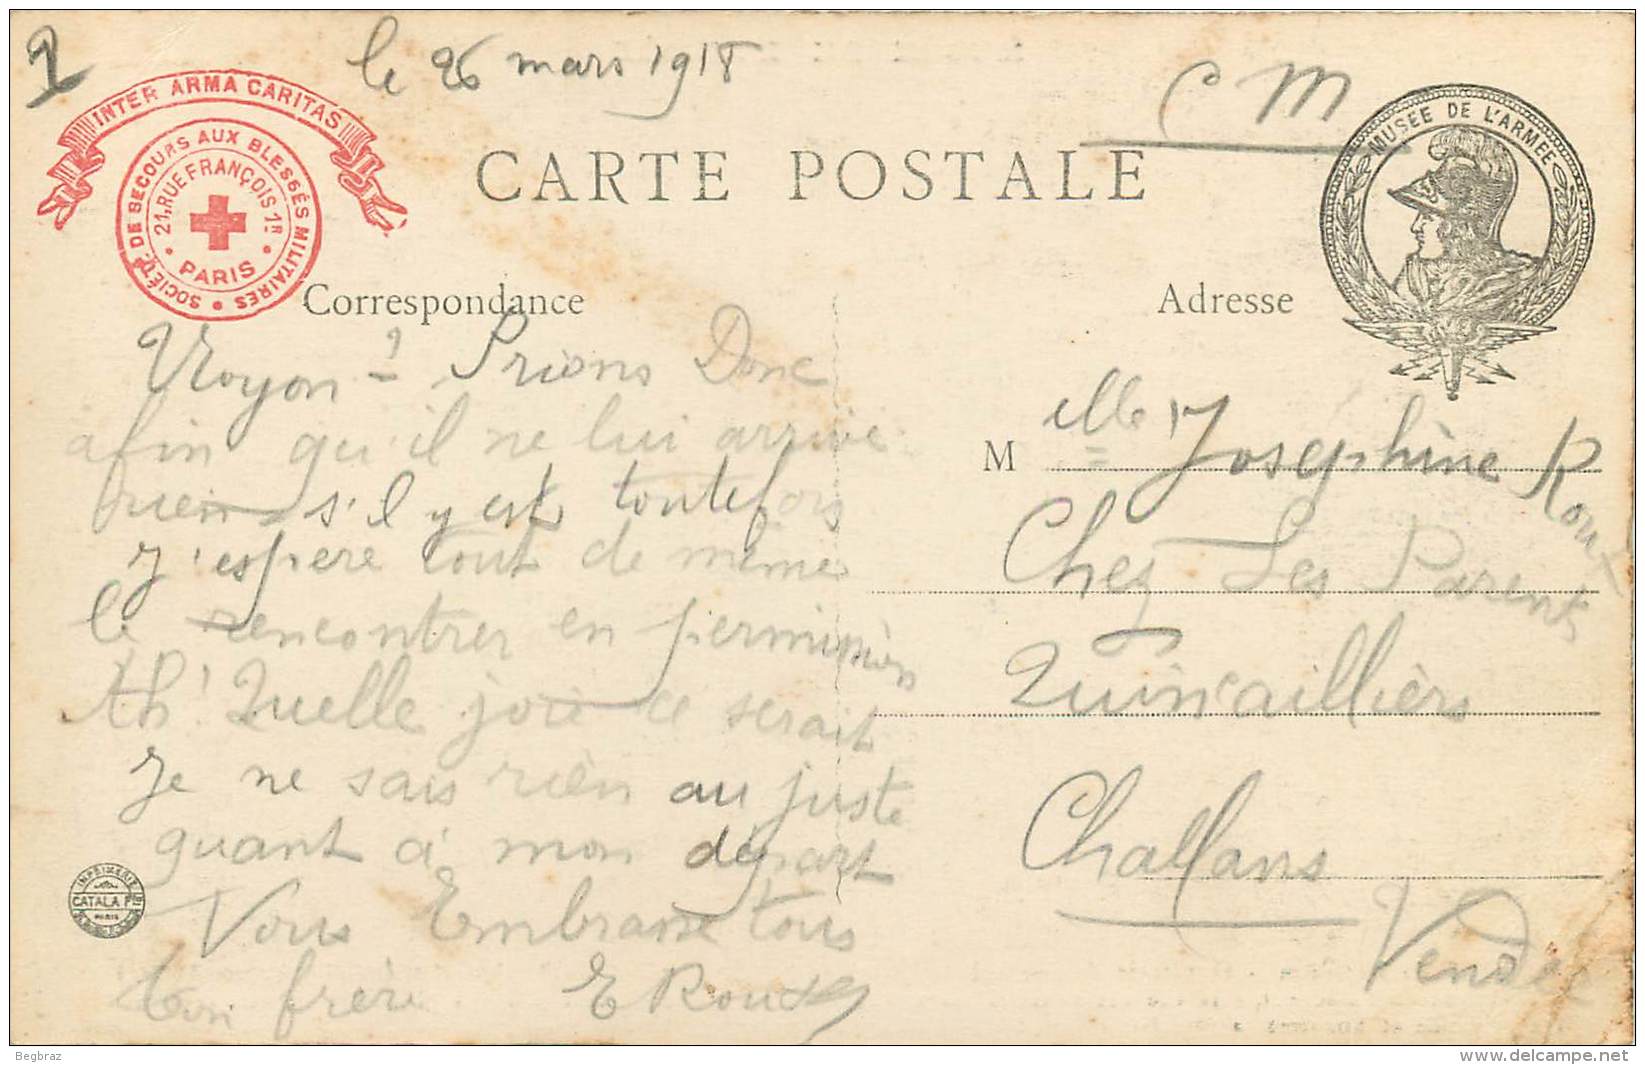 2
le 26 mars 1918
C M
INTER ARMA CARITAS
SOCIÉTÉ DE SECOURS AUX BLESSÉS MILITAIRES
21, RUE FRANÇOIS 1ER
PARIS
MUSÉE DE L'ARMÉE
CARTE POSTALE
Correspondance
Noyon ? - Prions Donc
afin qu'il ne lui arrive
rien s'il y est toutefois
J'espère tout de même
le rencontrer en permission
Ah ! Quelle joie ce serait
Je ne sais rien au juste
quant à mon départ
Vous Embrasse tous
Ton frère E Roux
Adresse
M elle Joséphine Roux
Chez Les Parents
Quincailliers
Challans
Vendée
IMPRIMERIE
CATALA F
PARIS
Begbraz
www.delcampe.net